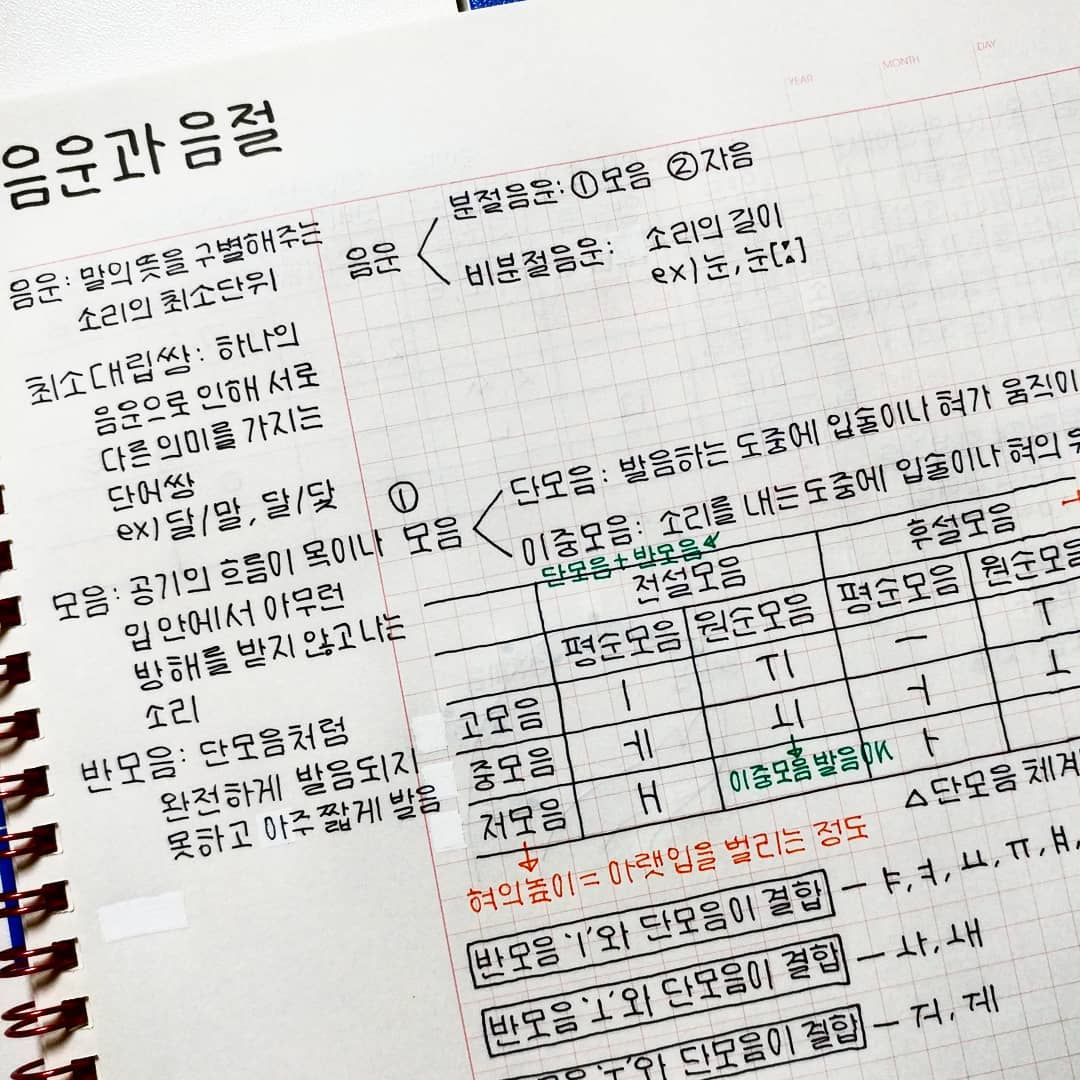 YEAR MONTH DAY
음운과 음절
음운: 말의 뜻을 구별해주는
소리의 최소단위
최소대립쌍: 하나의
음운으로 인해 서로
다른 의미를 가지는
단어쌍
ex) 달/말, 달/닻
모음: 공기의 흐름이 목이나
입 안에서 아무런
방해를 받지 않고 나는
소리
반모음: 단모음처럼
완전하게 발음되지
못하고 아주 짧게 발음
음운
분절음운: ①모음 ②자음
비분절음운: 소리의 길이
ex) 눈, 눈[ː]
① 모음
단모음: 발음하는 도중에 입술이나 혀가 움직이
이중모음: 소리를 내는 도중에 입술이나 혀의
단모음+반모음
전설모음 후설모음
평순모음 원순모음 평순모음 원순모음
고모음 ㅣ ㅟ ㅡ ㅜ
중모음 ㅔ ㅚ ㅓ ㅗ
저모음 ㅐ ㅏ
이중모음 발음OK
△단모음 체계
혀의 높이 = 아랫입을 벌리는 정도
반모음 'ㅣ'와 단모음이 결합 - ㅑ, ㅕ, ㅛ, ㅠ, ㅒ,
반모음 'ㅗ'와 단모음이 결합 - ㅘ, ㅙ
'ㅜ'와 단모음이 결합 - ㅝ, ㅞ